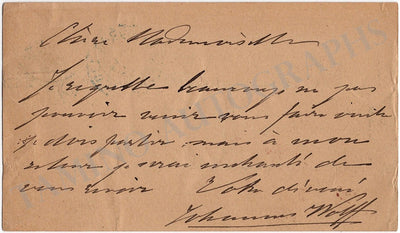 Chère Mademoiselle
Je regrette beaucoup ne pas
pouvoir venir vous faire visite
je dois partir mais à mon
retour je serai enchanté de
vous revoir Votre dévoué
Johannes Wolff